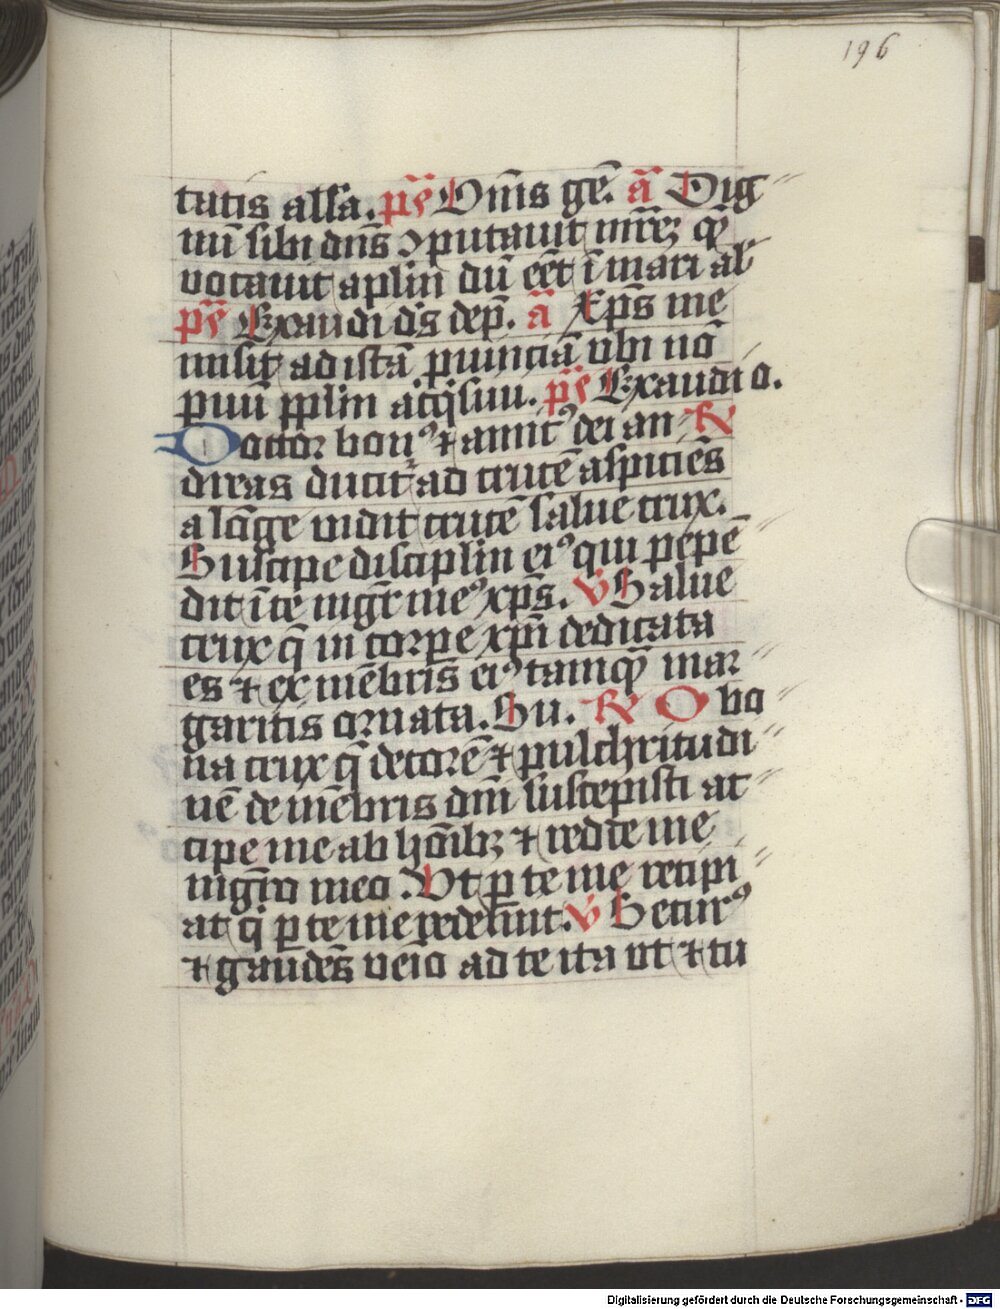 196
tutis alla. ps̄ Om̄s gē. ā Dig
nū sibi dn̄s ↄputauit mr̄eꝫ qͥ
vocauit aplm̄ dū eēt ī mari al'
ps̄ Exaudi ds̄ dep̄. ā Xp̄s me
misit ad istā ꝓuinciā vbi nō
ꝑuū pplm̄ acq̄siui. ps̄ Exaudi o.
Doctor bonꝰ ⁊ amicꝰ dei an R
dreas ducit᷑ ad crucē aspiciēs
a lōge vidit crucē salue crux.
Suscipe disciplm̄ eiꝰ qui pepē
dit ī te mgr̄ meꝰ xp̄s. V Salue
crux q̄ in corpe xpī dedicata
es ⁊ ex mēbris eiꝰ tamqͣ mar
garitis ornata. Su. R O bo
na crux q̄ decorē ⁊ pulchritudi
nē de mēbris dnī suscepisti ac
cipe me ab hōībꝫ ⁊ redde me
mgr̄o meo. Vt ꝑ te me recipi
at q̄ ꝑ te me redemit. V Securꝰ
⁊ gaudēs venio ad te ita vt ⁊ tu
Digitalisierung gefördert durch die Deutsche Forschungsgemeinschaft - DFG